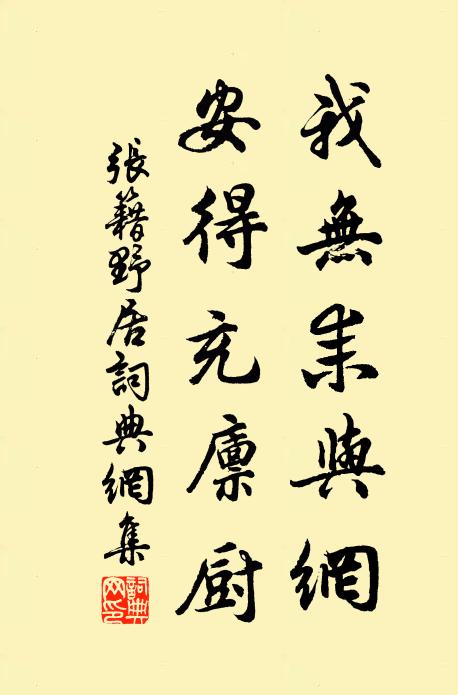 我無耒與網
安得充廩厨
張籍野居詞典網集
詞典
网印